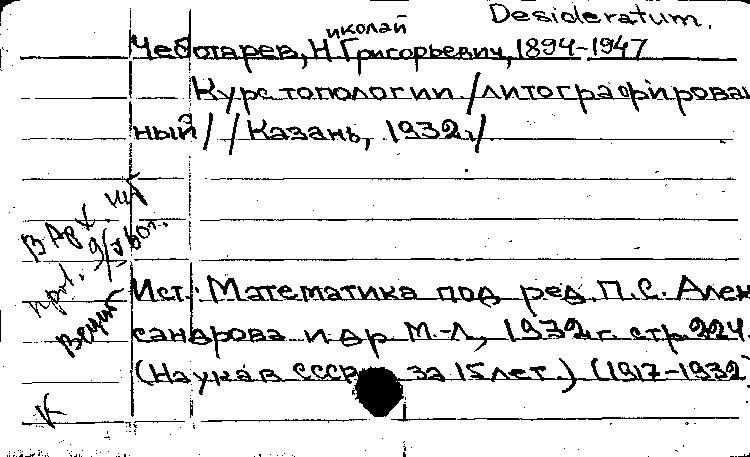 Desideratum.
иколай
Чеботарев, Н. Григорьевич, 1894-1947
Курс топологии /литографирован
ный/ /Казань, 1932г./
Ист.: Математика под ред. П.С. Алек
сандрова и др М.-Л, 1932 г. стр 224.
(Наука в СССР за 15 лет.) (1917-1932
К